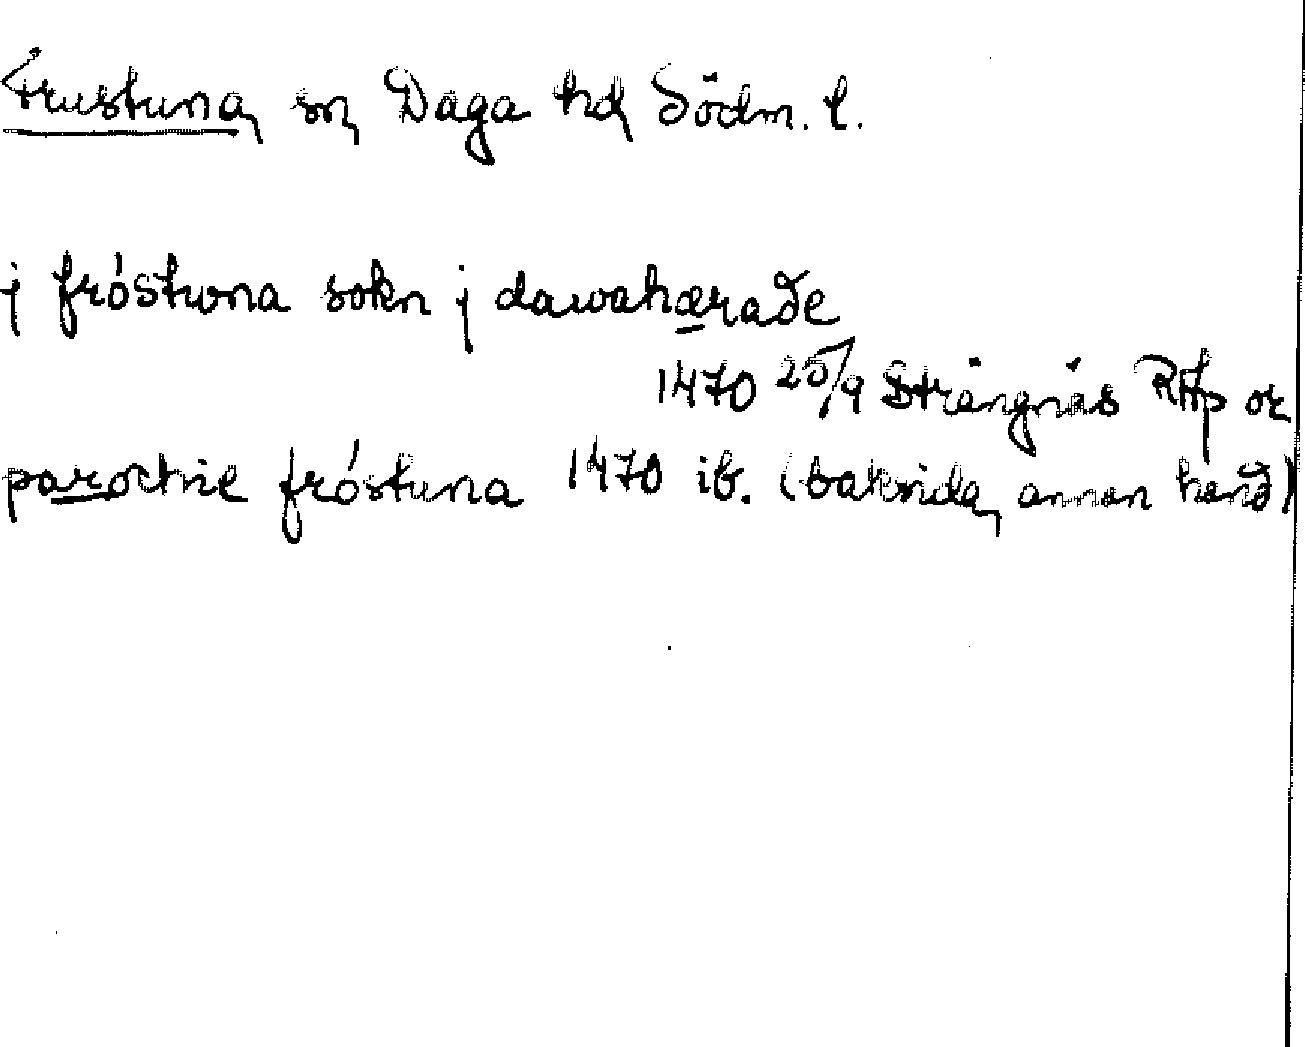 Frustuna, sn, Daga hd, Södm. l.
j fróstwna sokn j dawahæraðe
1470 25/9 Strängnäs RAp or
parochie fróstuna 1470 ib. (baksida, annan hand)